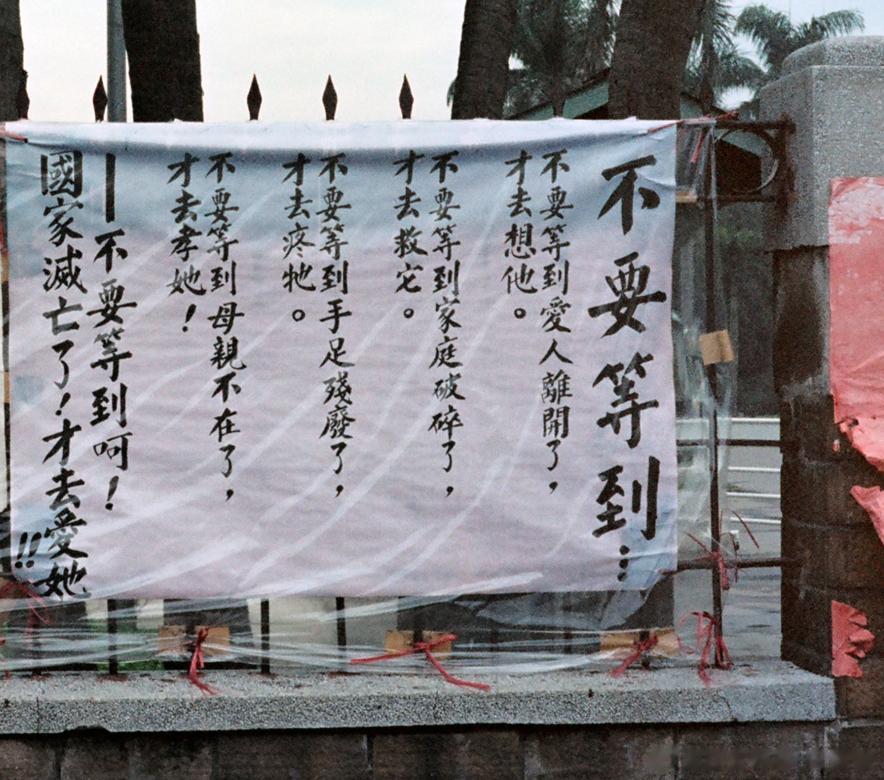 不要等到…
不要等到愛人離開了，
才去想他。
不要等到家庭破碎了，
才去救它。
不要等到手足殘廢了，
才去疼牠。
不要等到母親不在了，
才去孝她！
—不要等到呵！
國家滅亡了！才去愛她!!